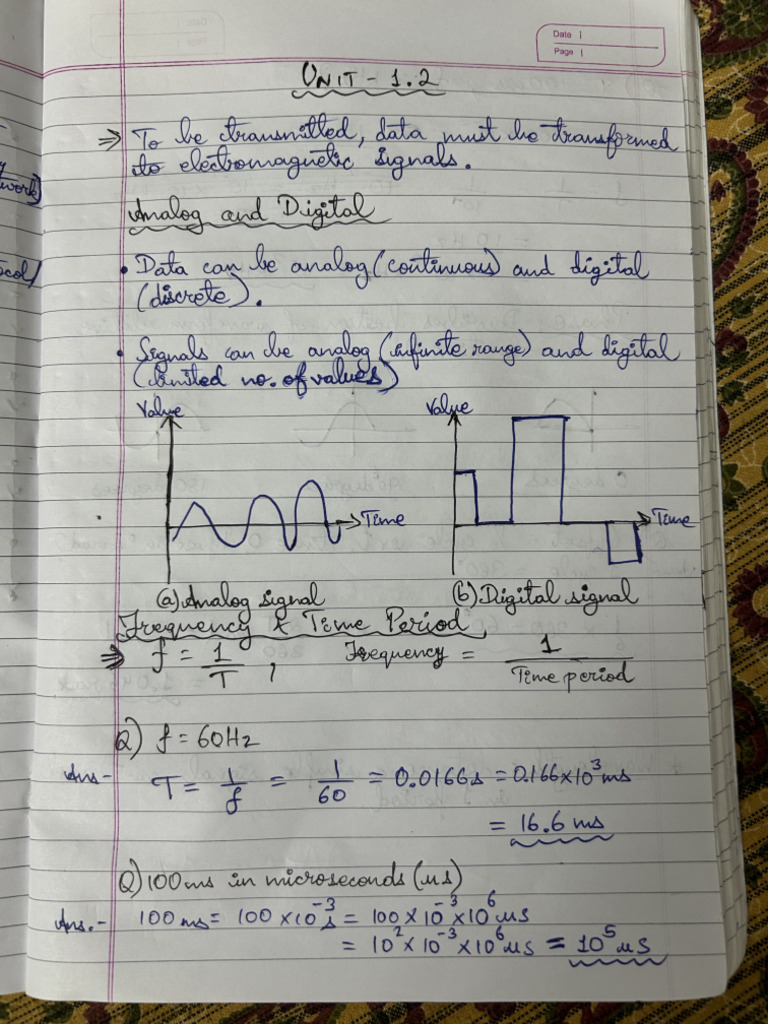 Date |
Page |
UNIT - 1.2
⇒ To be transmitted, data must be transformed
to electromagnetic signals.
Analog and Digital
• Data can be analog (continuous) and digital
(discrete).
• Signals can be analog (infinite range) and digital
(limited no. of values)
Value
Time
(a) Analog signal
Value
Time
(b) Digital signal
Frequency & Time Period
⇒ f = 1/T , Frequency = 1/Time period
Q) f = 60Hz
Ans- T = 1/f = 1/60 = 0.0166s = 0.166×10³ ms
= 16.6 ms
Q) 100ms in microseconds (μs)
Ans.- 100 ms = 100 ×10⁻³ s = 100×10⁻³×10⁶ μs
= 10²×10⁻³×10⁶ μs = 10⁵ μs
work)
ocol)